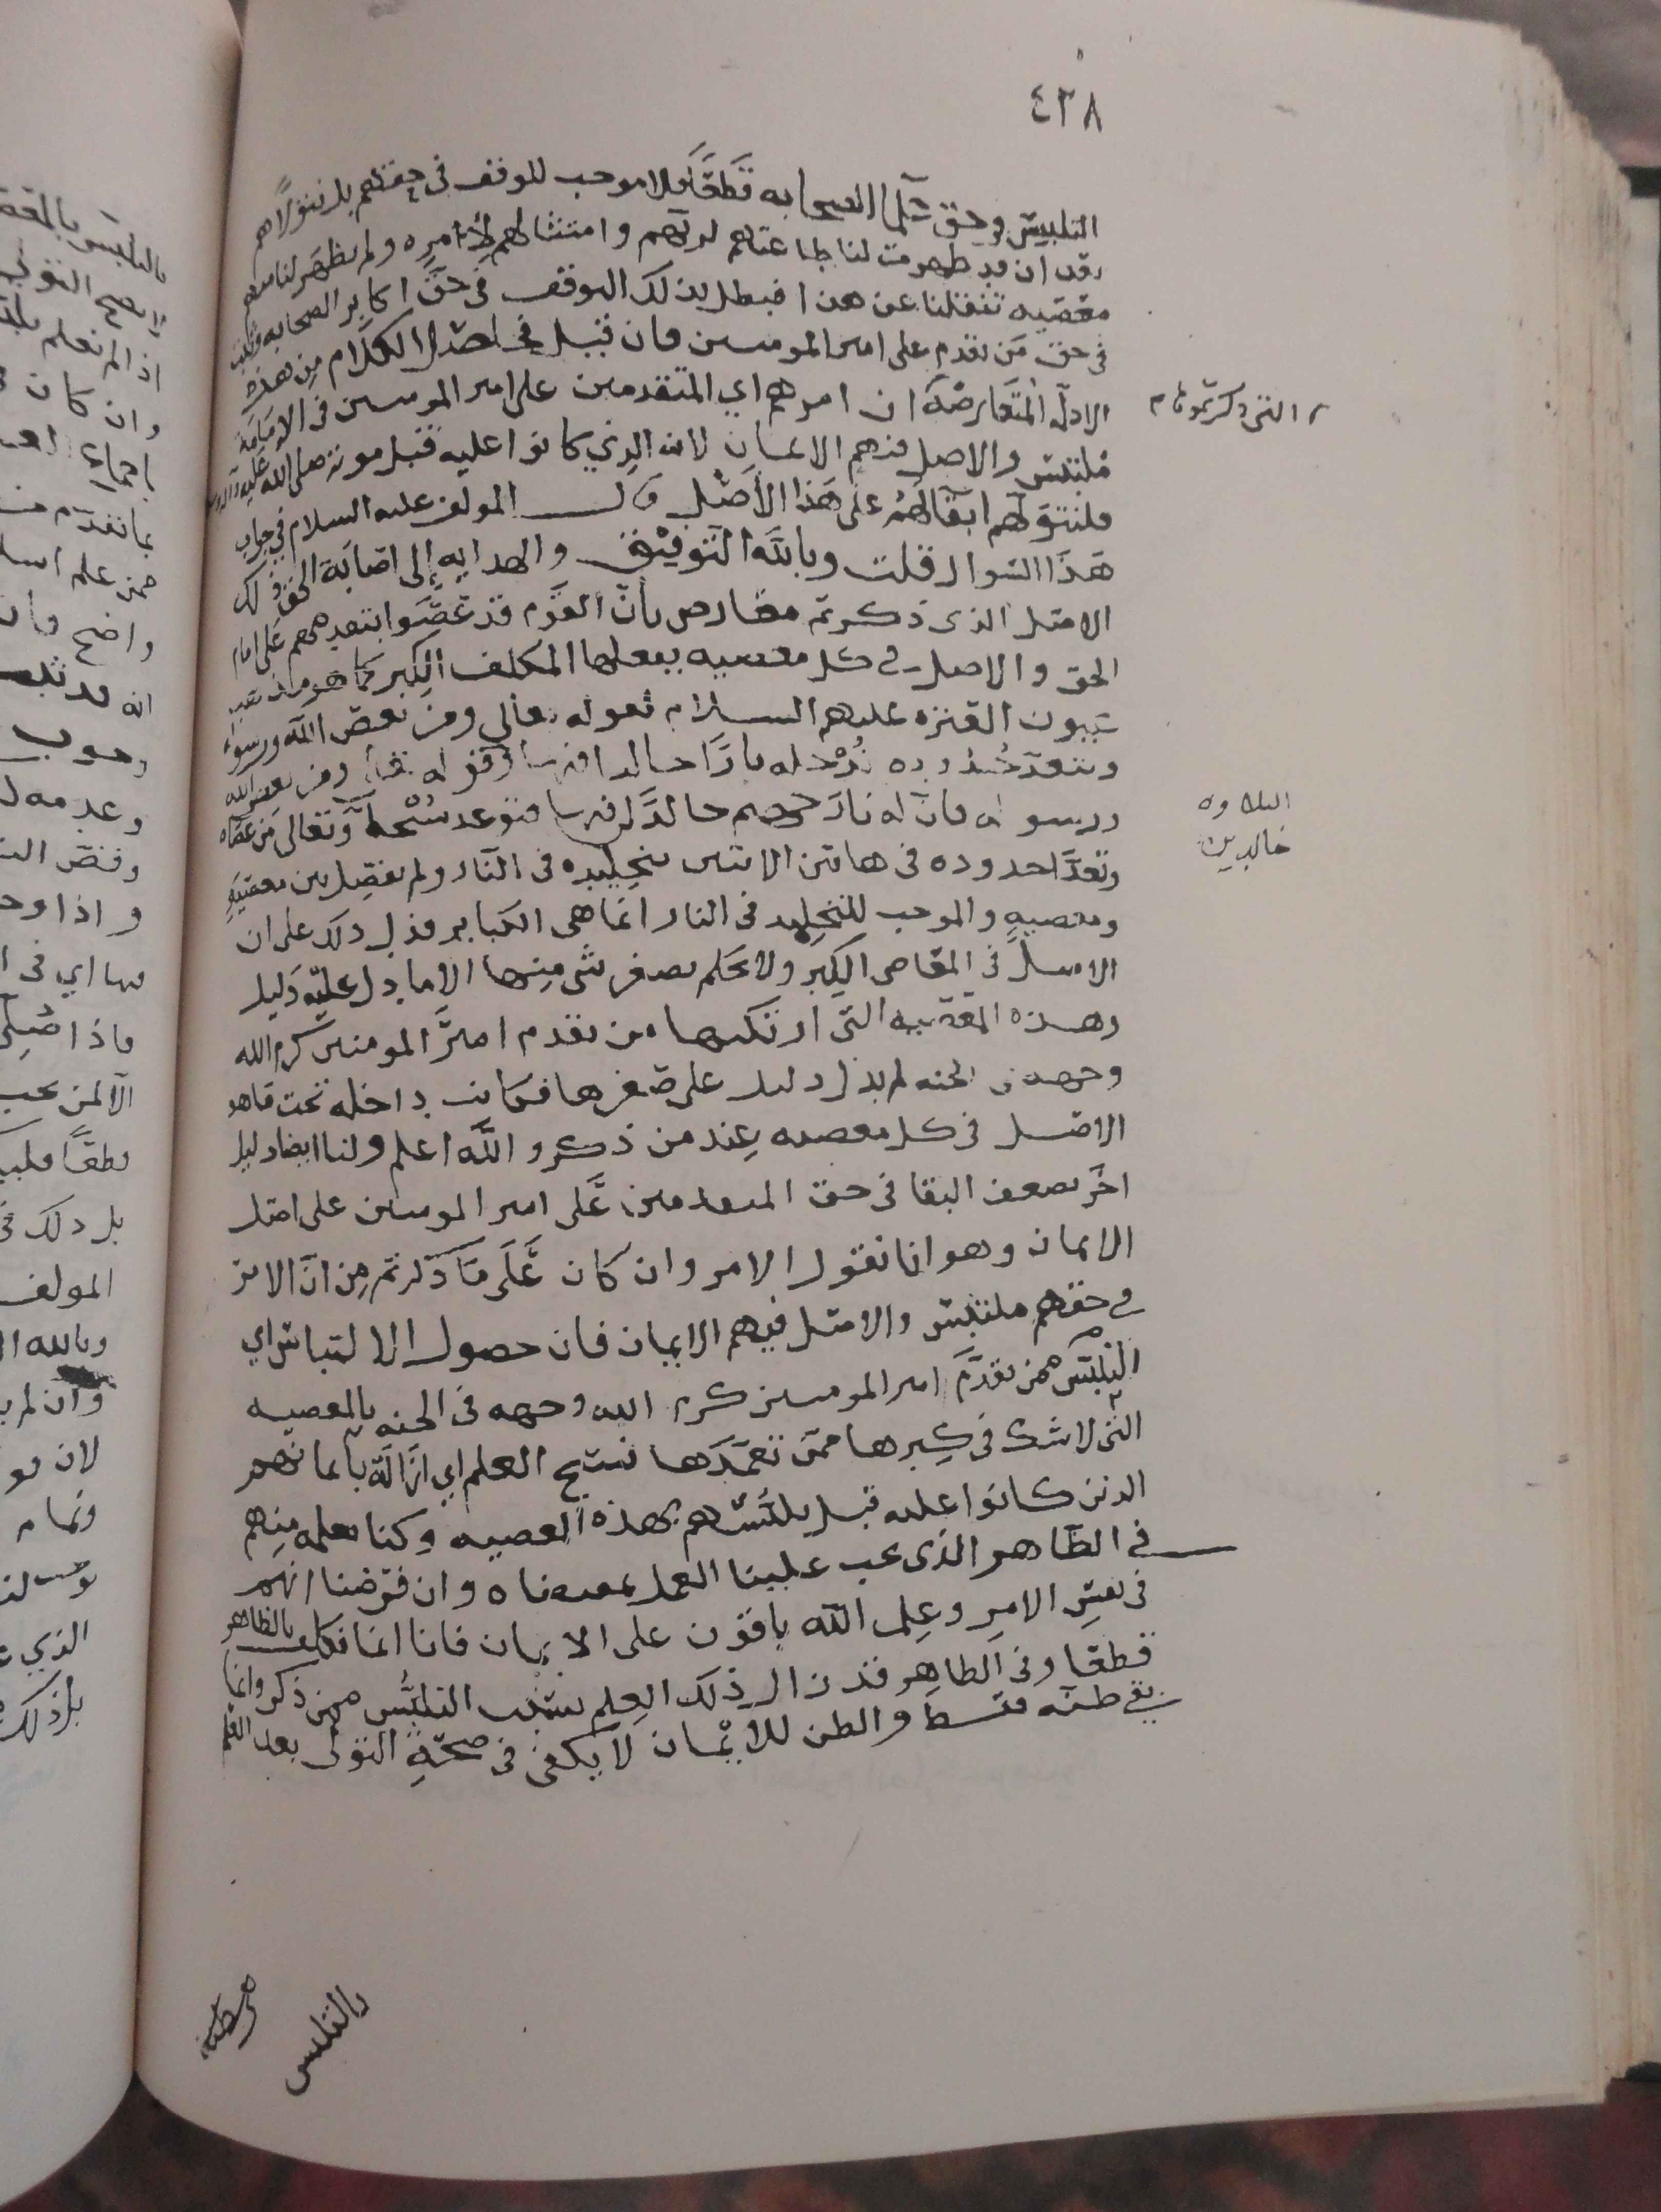 ٤٣٨
التلبيس وحق الصحابه قطعًا فلا موجب للوقف في حقهم بل نتولاهم
بعد ان قد ظهرت لنا طاعتهم لربهم وامتثالهم لأوامره ولم يظهر لنا منهم
معصيه تنقلنا عن هذا فبطل بذلك التوقف في حق اكابر الصحابه
في حق من تقدم على امير المومنين فان قيل في اصل الكلام من هذه
الادلة المتعارضة ان امرهم اي المتقدمين على امير المومنين في الامامة
التي ذكرتموها
ملتبس والاصل فيهم الايمان لانه الذي كانوا عليه قبل موته صلى الله عليه وآله
فلنتولهم ابقآ لهم على هذا الأصل قال المولف عليه السلام في جواب
هذا السوال قلت وبالله التوفيق والهدايه إلى اصابة الحق
الاصل الذي ذكرتم معارض بان القوم قد عصوا بتقدمهم على امام
الحق والاصل في كل معصيه يفعلها المكلف الكبر كما هو مذهب
العتره عليهم السلام لقوله تعالى ومن يعص الله ورسوله
ويتعد حدوده يدخله نارًا خالدا فيها وقوله تعالى ومن يعص الله
ورسوله فان له نار جهنم خالدًا فيها فتوعد سبحانه وتعالى من عصاه
التلاوه
خالدين
وتعدا حدوده في هاتين الايتين بتخليده في النار ولم يفصل بين معصية
ومعصيه والموجب للتخليد في النار انما هي الكباير فدل ذلك على ان
الاصل في المعاصي الكبر ولا نحكم بصغر شي منها الا ما دل عليه دليل
وهذه المعصيه التي ارتكبها من تقدم امير المومنين كرم الله
وجهه في الجنه لم يدل دليل على صغرها فكانت داخله تحت ما هو
الاصل في كل معصيه عند من ذكر والله اعلم ولنا ايضا دليل
اخر يضعف البقا في حق المتقدمين على امير المومنين على اصل
الايمان وهو انا نقول الامر وان كان على ما ذكرتم من ان الامر
في حقهم ملتبس والاصل فيهم الايمان فان حصول الالتباس اي
التلبس ممن تقدم امير المومنين كرم الله وجهه في الجنه بالمعصيه
التي لا شك في كبرها ممن تعمدها فسخ العلم اي ازالة بايمانهم
الذين كانوا عليه قبل تلبسهم بهذه المعصيه وكنا نعلمه منهم
في الظاهر الذي يجب علينا العمل بمقتضاه وان فرضنا انهم
في نفس الامر وعلم الله باقون على الايمان فانا انما نكلف بالظاهر
قطعا وفي الظاهر قد زال ذلك العلم بسبب التلبس ممن ذكر وانما
بقي ظنه فقط والظن للأيمان لا يكفي في صحة التولي بعد العلم
بالتلبس